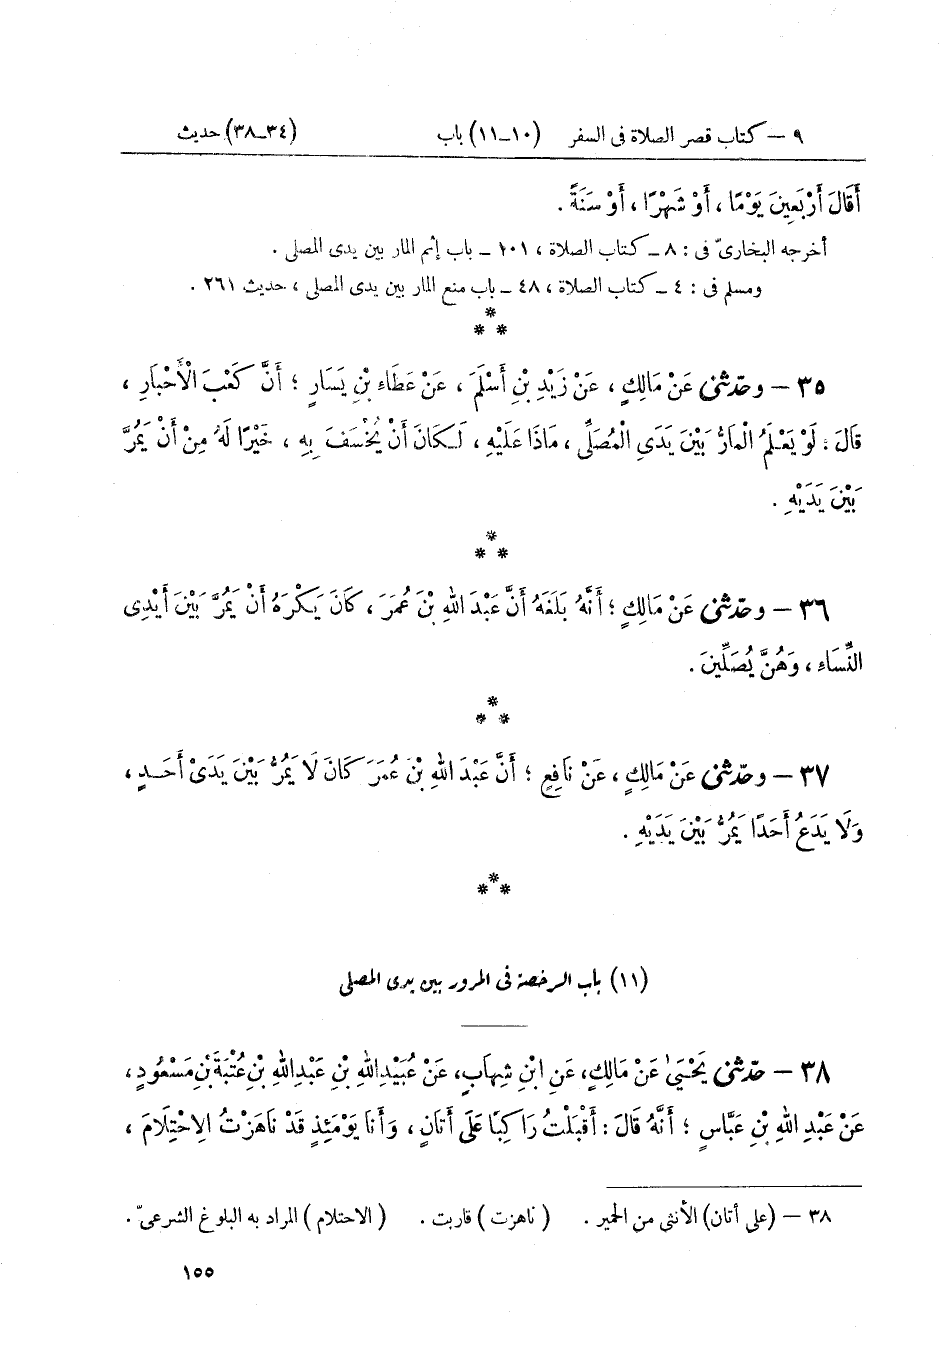 ٩ – كتاب قصر الصلاة فى السفر (١٠–١١) باب (٣٤–٣٨) حديث
أَقَالَ أَرْبَعِينَ يَوْمًا ، أَوْ شَهْرًا ، أَوْ سَنَةً .
أخرجه البخارىّ فى : ٨ – كتاب الصلاة ، ١٠١ – باب إثم المار بين يدى المصلى .
ومسلم فى : ٤ – كتاب الصلاة ، ٤٨ – باب منع المار بين يدى المصلى ، حديث ٢٦١ .
*
* *
٣٥ – وحدّثنى عَنْ مَالِكٍ ، عَنْ زَيْدِ بْنِ أَسْلَمَ ، عَنْ عَطَاءِ بْنِ يَسَارٍ ؛ أَنَّ كَعْبَ الْأَحْبَارِ ،
قَالَ : لَوْ يَعْلَمُ الْمَارُّ بَيْنَ يَدَىِ الْمُصَلِّى ، مَاذَا عَلَيْهِ ، لَكَانَ أَنْ يُخْسَفَ بِهِ ، خَيْرًا لَهُ مِنْ أَنْ يَمُرَّ
بَيْنَ يَدَيْهِ .
*
* *
٣٦ – وحدّثنى عَنْ مَالِكٍ ؛ أَنَّهُ بَلَغَهُ أَنَّ عَبْدَ اللهِ بْنَ عُمَرَ ، كَانَ يَكْرَهُ أَنْ يَمُرَّ بَيْنَ أَيْدِى
النِّسَاءِ ، وَهُنَّ يُصَلِّينَ .
*
* *
٣٧ – وحدّثنى عَنْ مَالِكٍ ، عَنْ نَافِعٍ ؛ أَنَّ عَبْدَ اللهِ بْنَ عُمَرَ كَانَ لَا يَمُرُّ بَيْنَ يَدَىْ أَحَدٍ ،
وَلَا يَدَعُ أَحَدًا يَمُرُّ بَيْنَ يَدَيْهِ .
*
* *
(١١) باب الرخصة فى المرور بين يدى المصلى
٣٨ – حدّثنى يَحْيَىٰ عَنْ مَالِكٍ، عَنِ ابْنِ شِهَابٍ، عَنْ عُبَيْدِاللهِ بْنِ عَبْدِاللهِ بْنِ عُتْبَةَ بْنِ مَسْعُودٍ ،
عَنْ عَبْدِ اللهِ بْنِ عَبَّاسٍ ؛ أَنَّهُ قَالَ : أَقْبَلْتُ رَاكِبًا عَلَى أَتَانٍ ، وَأَنَا يَوْمَئِذٍ قَدْ نَاهَزْتُ الِاحْتِلَامَ ،
٣٨ – (على أتان) الأنثى من الحمير . ( ناهزت ) قاربت . ( الاحتلام ) المراد به البلوغ الشرعىّ .
١٥٥